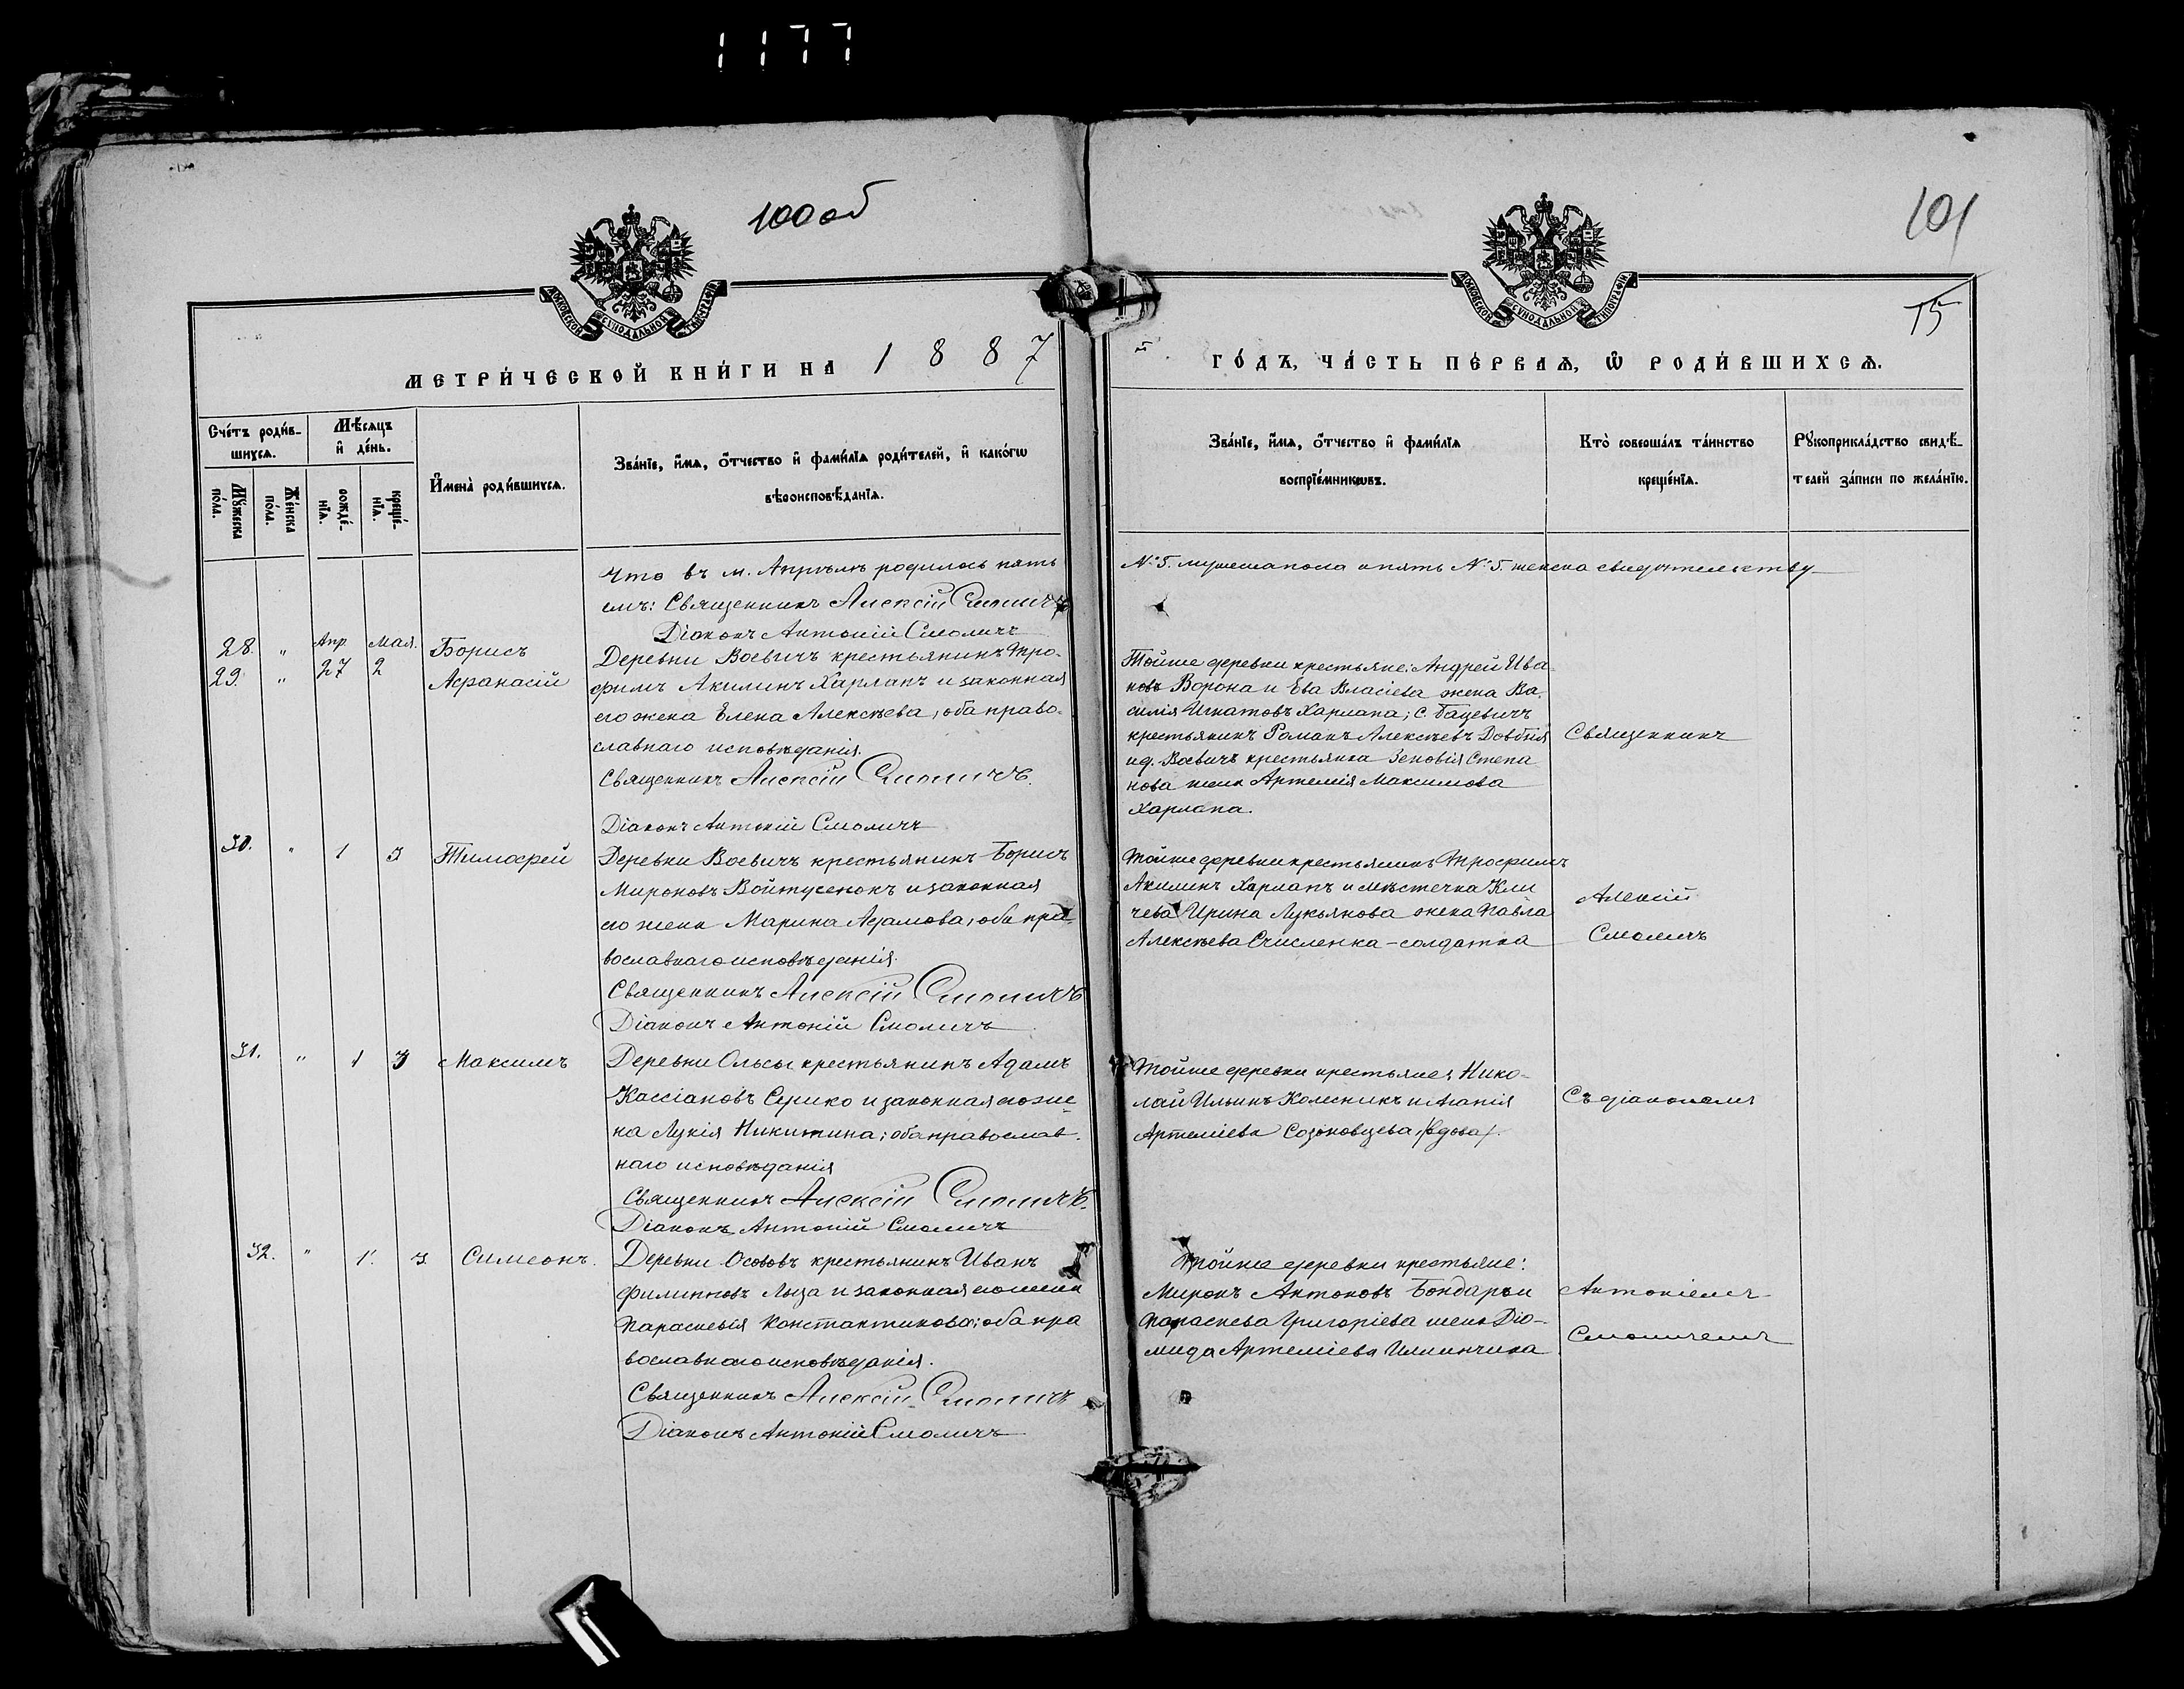 1177
100 об
101
15
МОСКОВСКОЙ СѴНОДАЛЬНОЙ ТИПОГРАФІИ
МОСКОВСКОЙ СѴНОДАЛЬНОЙ ТИПОГРАФІИ
МЕТРИ́ЧЕСКОЙ КНИ́ГИ НА 1887
й ГО́ДЪ, ЧА́СТЬ ПЕ́РВАѦ, Ѡ҆ РОДИ́ВШИХСѦ.
Сче́тъ роди́в-
шихсѧ.
Мѣ́сѧцъ
и҆ де́нь.
Мꙋ́жеска
по́ла.
Же́нска
по́ла.
рожде́-
нїѧ.
креще́-
нїѧ.
И҆мена̀ роди́вшихсѧ.
Зва́нїе, и҆́мѧ, ѻ҆́тчество и҆ фами́лїѧ роди́телей, и҆ како́гѡ
вѣроисповѣ́данїѧ.
Зва́нїе, и҆́мѧ, ѻ҆́тчество и҆ фами́лїѧ
воспрїе́мникѡвъ.
Кто̀ соверша́лъ та́инство
креще́нїѧ.
Рꙋкоприкла́дство свидѣ́-
телей за́писи по жела́нїю.
Что въ м. Апрѣлѣ родилось пять
№ 5. мужеска пола и пять № 5. женска свидѣтельству-
емъ: Священникъ Алексій Смоличъ
Діаконъ Антоній Смоличъ
28. " Апр. Мая. Борисъ
29. " 27 2 Афанасій
Деревни Воевичъ крестьянинъ Тро-
фимъ Акилинъ Харлапъ и законная
его жена Елена Алексѣева, оба право-
славнаго исповѣданія.
Священникъ Алексій Смоличъ.
Діаконъ Антоній Смоличъ
Тойже деревни крестьяне: Андрей Ива-
новъ Ворона и Ева Власіева жена Ва-
силія Игнатовъ Харлапа; с. Бацевичъ
крестьянинъ Романъ Алексѣевъ Довбня
и д. Воевичъ крестьянка Зеновія Степа
нова жена Артемія Максимова
Харлапа.
Священникъ
30. " 1 3 Тимофей
Деревни Воевичъ крестьянинъ Борисъ
Мироновъ Войтусенокъ и законная
его жена Марина Адамова, оба пра-
вославнаго исповѣданія.
Священникъ Алексій Смоличъ
Діаконъ Антоній Смоличъ
Тойже деревни крестьянинъ Трофимъ
Акилинъ Харлапъ и мѣстечка Кли
чева Ирина Лукьянова жена Павла
Алексѣева Счисленка - солдатка
Алексій
Смоличъ
31. " 1 3 Максимъ
Деревни Ольсы крестьянинъ Адамъ
Кассіановъ Сурико и законная его же-
на Лукія Никитина; оба православ-
наго исповѣданія
Священникъ Алексій Смоличъ.
Діаконъ Антоній Смоличъ
Тойже деревни крестьяне: Нико-
лай Ильинъ Колесникъ и Агапія
Артеміева Созоновцева /вдова/.
Съ діакономъ
32. " 1. 3 Симеонъ.
Деревни Особовъ крестьянинъ Иванъ
Филиповъ Лыза и законная его жена
Параскевія Константинова; оба пра
вославнаго исповѣданія.
Священникъ Алексій Смоличъ
Діаконъ Антоній Смоличъ
Тойже деревни крестьяне:
Миронъ Антоновъ Бондарь и
Параскева Григоріева жена Діо-
мида Артеміева
Антоніемъ
Смоличемъ